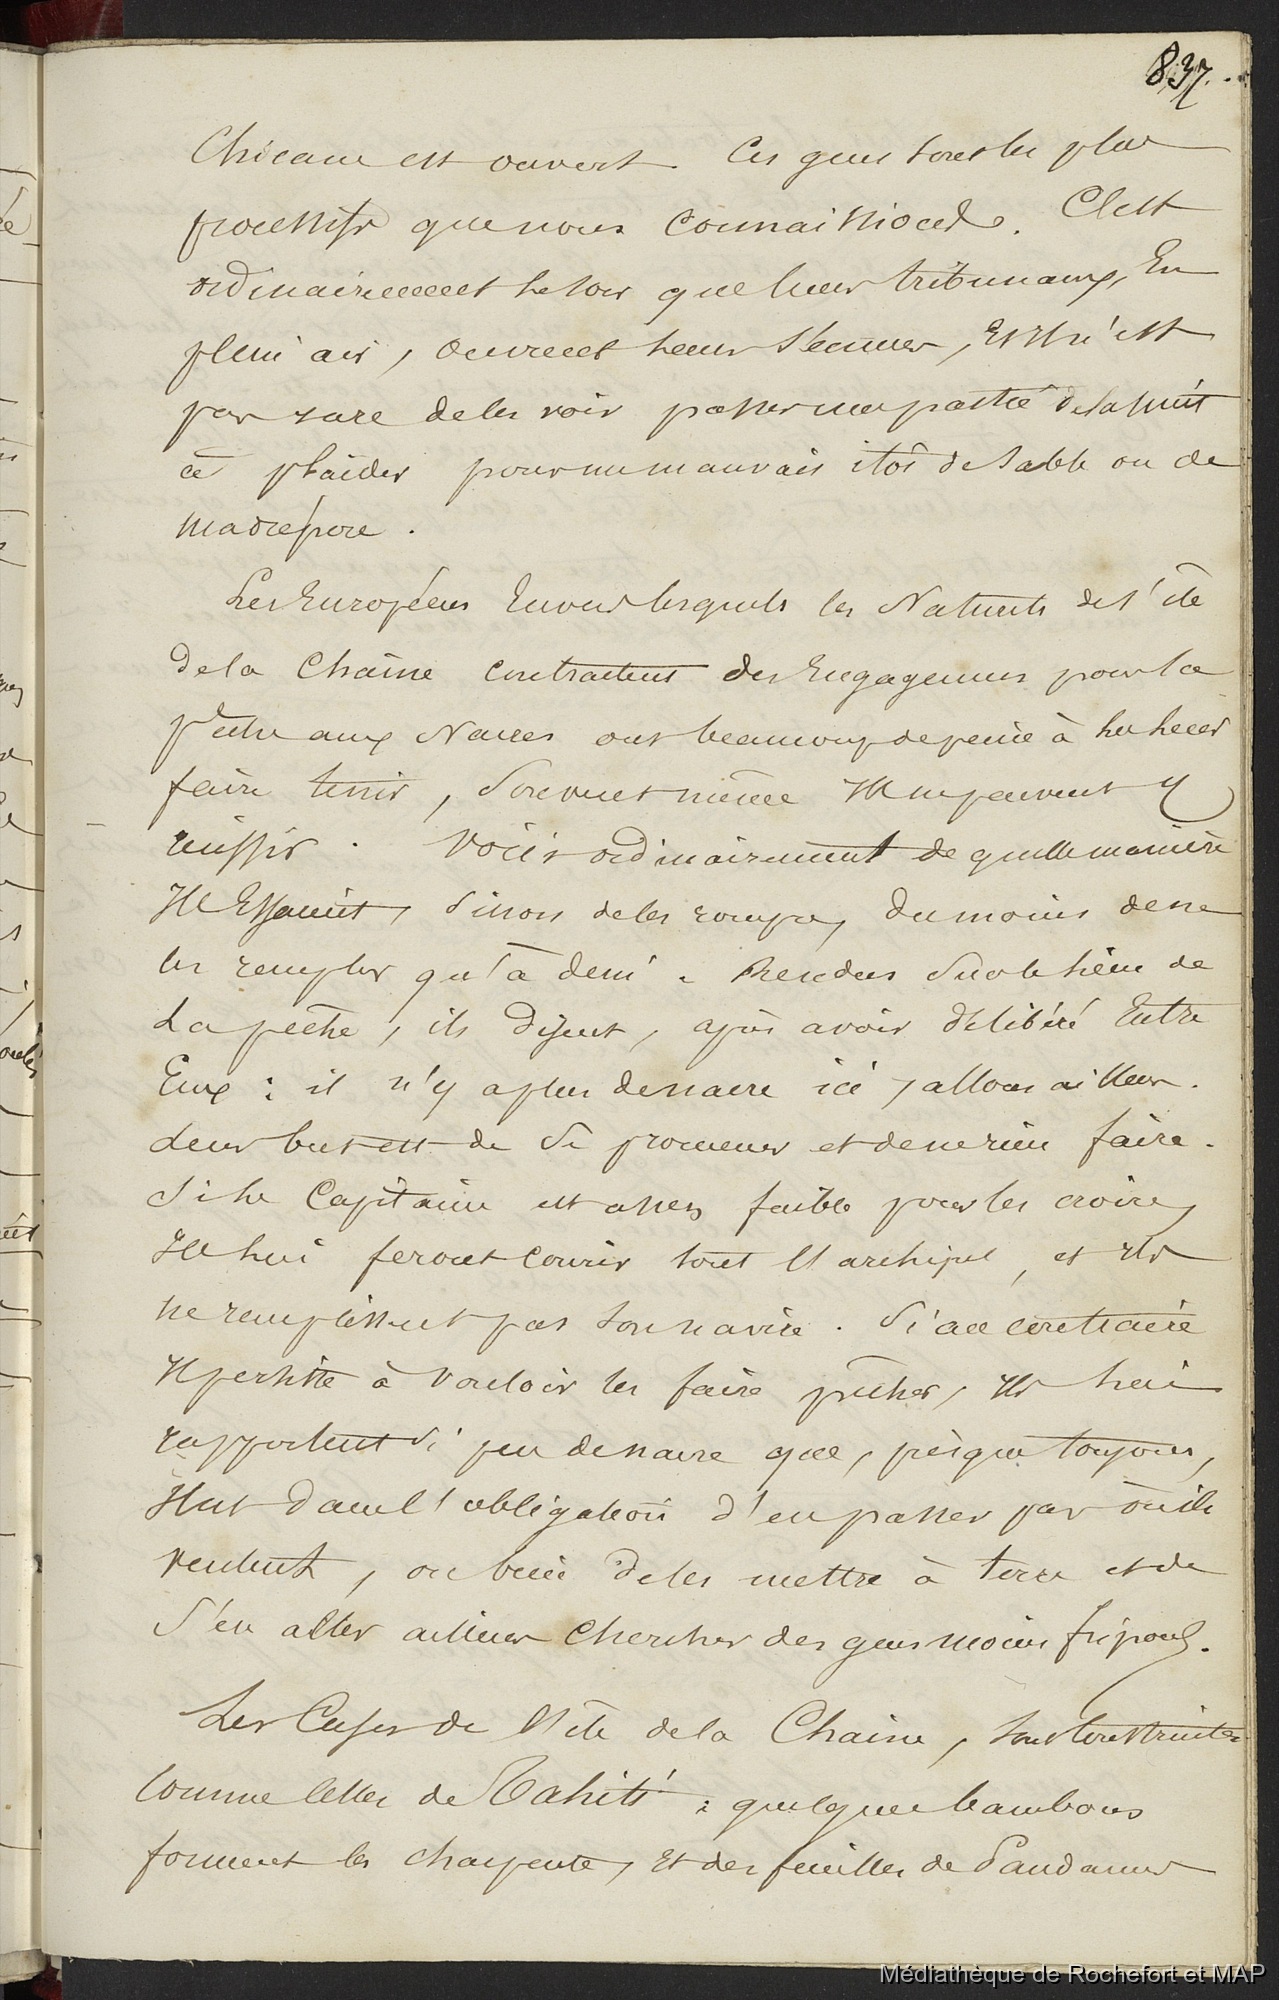 837.
Chicane est ouvert. Ces gens sont les plus
processifs que nous connaissions. C'est
ordinairement le soir que leurs tribunaux, En
plein air, ouvrent leurs séances, Et il n'est
pas rare de les voir passer une partie de la nuit
à plaider pour un mauvais îlot de sable ou de
madrépore.
Les Européens Envers lesquels les Naturels de l'île
de la Chaîne contractent des Engagemens pour la
pêche aux Nacres ont beaucoup de peine à les leur
faire tenir, Souvent même Ils ne peuvent y
réussir. Voici ordinairement de quelle manière
Ils Essaient, Sinon de les rompre, du moins de ne
les remplir qu'à demi. Rendus Sur le lieu de
La pêche, ils disent, après avoir délibéré Entre
Eux : il n'y a plus de nacre ici, allons ailleurs.
Leur but est de Se promener et de ne rien faire.
Si le Capitaine est assez faible pour les croire,
Ils lui feront courir tout l'archipel, et Ils
ne remplissent pas son navire. Si au contraire
Il persiste à vouloir les faire pêcher, Ils lui
rapportent si peu de nacre que, presque toujours,
Il est dans l'obligation d'en passer par où ils
veulent, ou bien de les mettre à terre et de
S'en aller ailleurs chercher des gens moins fripons.
Les Cases de l'île de la Chaîne, sont construites
comme celles de Tahiti : quelques bambous
forment les charpente, Et des feuilles de Pandanus
Médiathèque de Rochefort et MAP